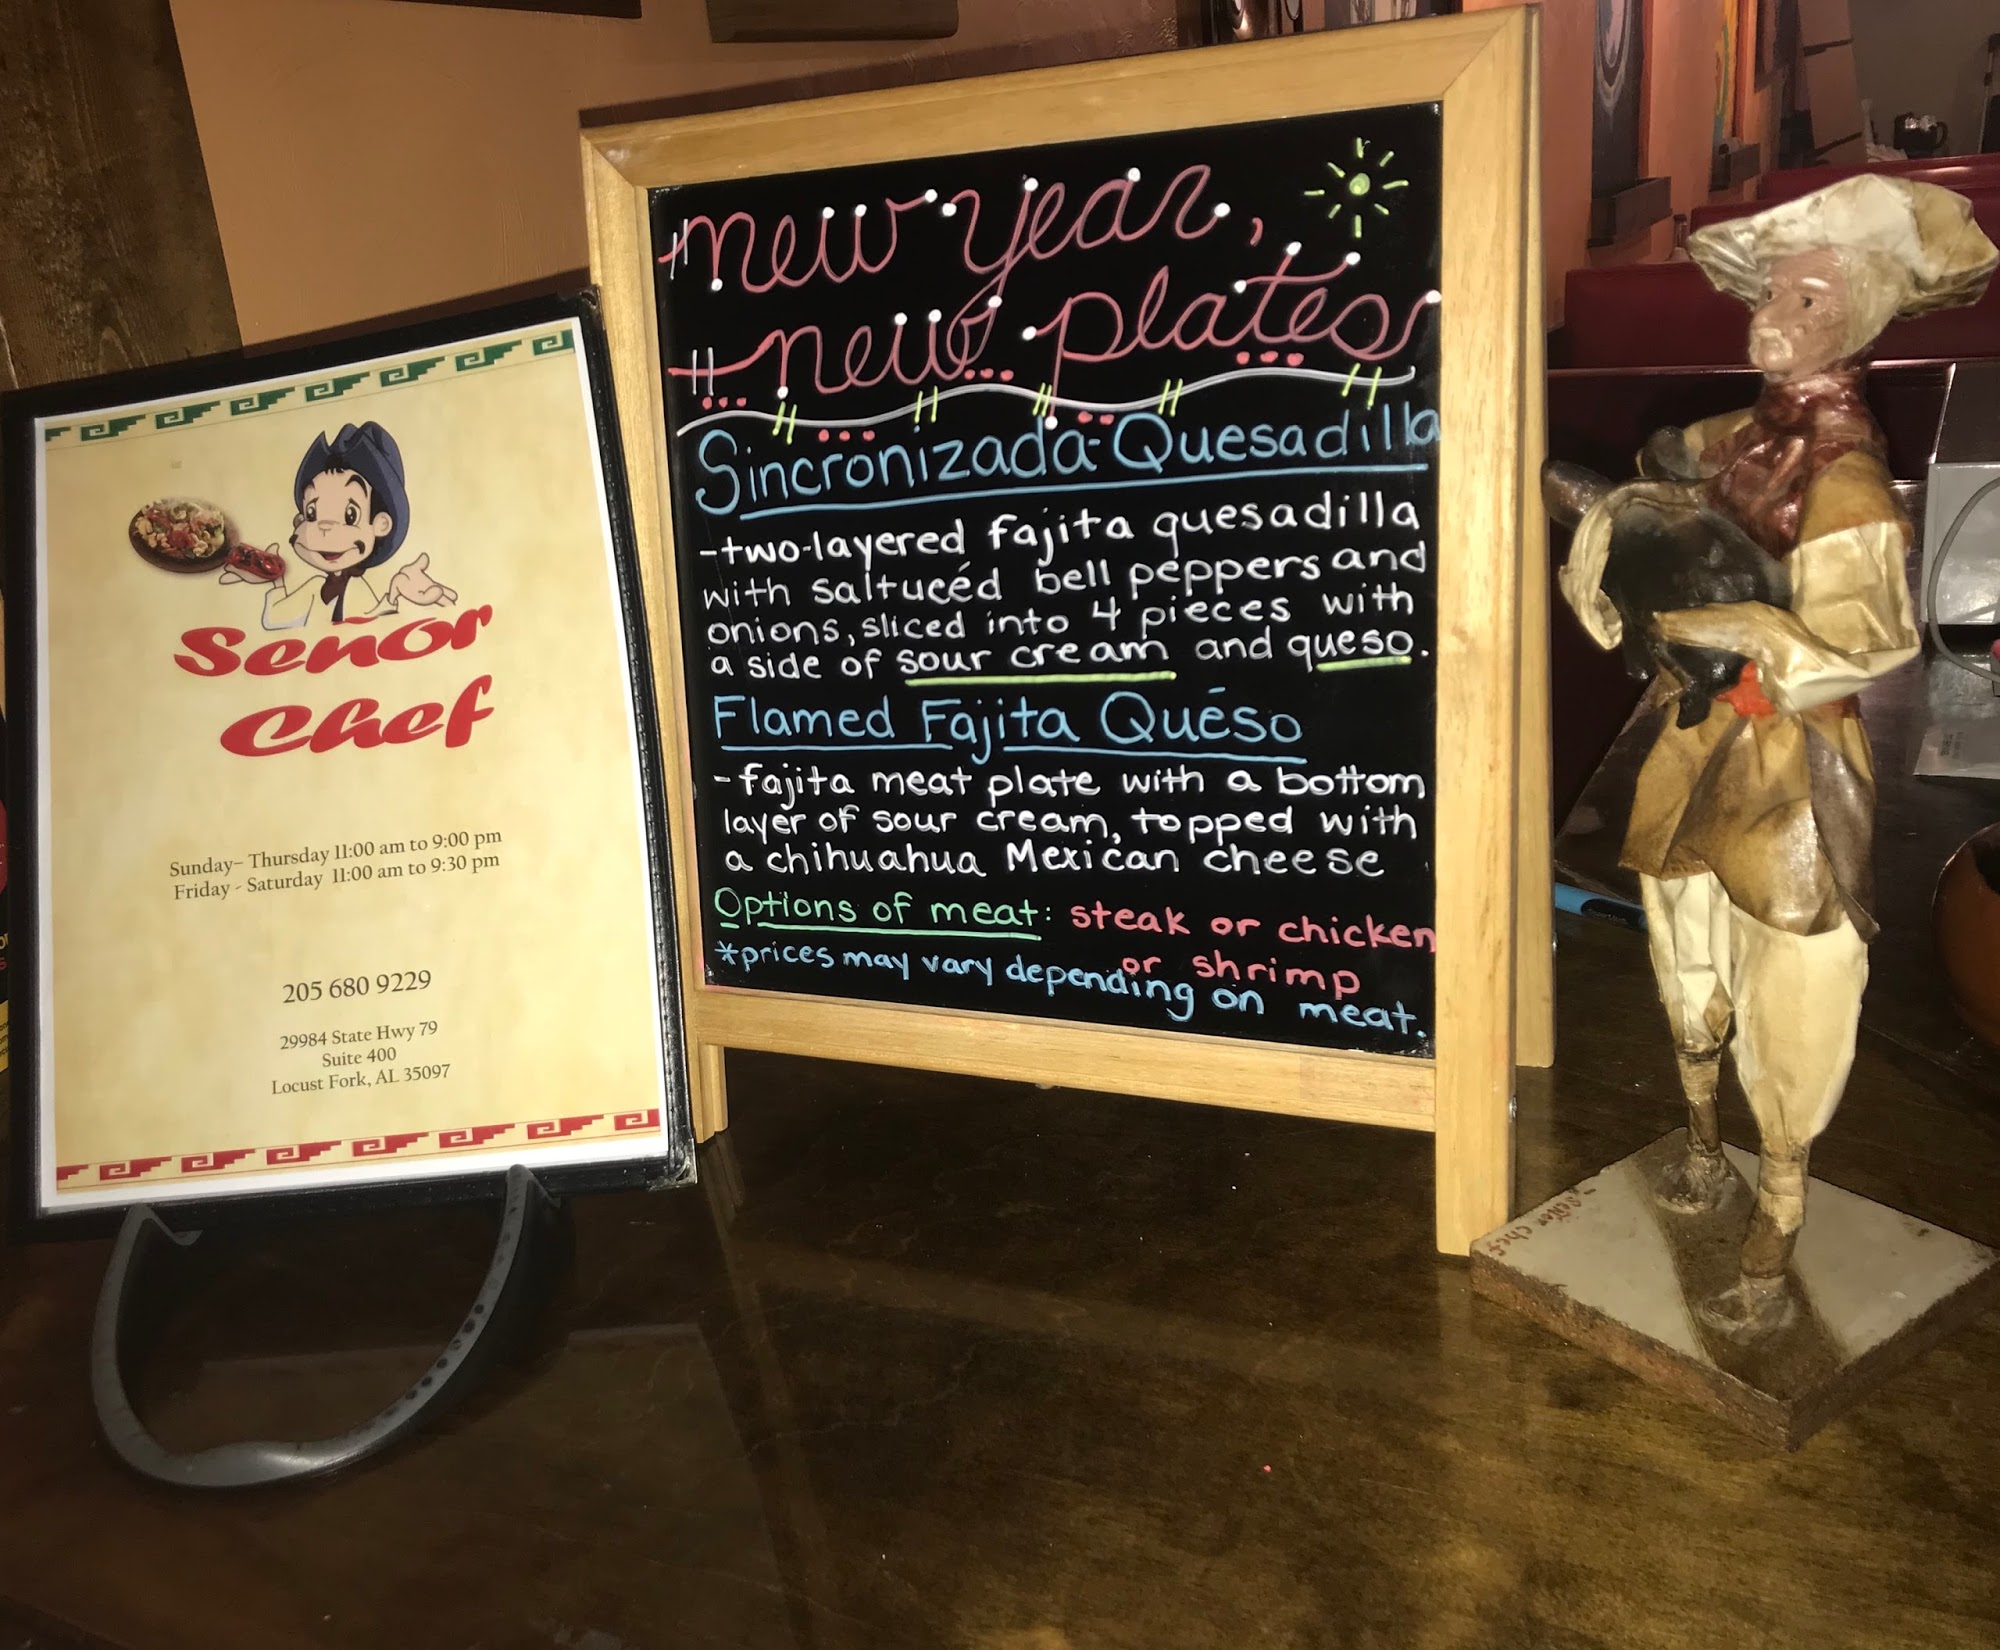 Señor
Chef
Sunday– Thursday 11:00 am to 9:00 pm
Friday - Saturday 11:00 am to 9:30 pm
205 680 9229
29984 State Hwy 79
Suite 400
Locust Fork, AL 35097
new year,
new plates
Sincronizada-Quesadilla
-two-layered fajita quesadilla
with saltucéd bell peppers and
onions, sliced into 4 pieces with
a side of sour cream and queso.
Flamed Fajita Quéso
-fajita meat plate with a bottom
layer of sour cream, topped with
a chihuahua Mexican cheese
Options of meat: steak or chicken
or shrimp
*prices may vary depending on meat.
señor chef